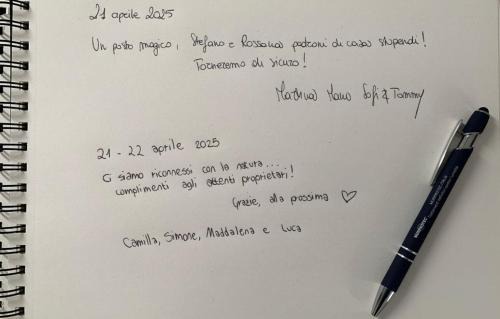 21 aprile 2025
Un posto magico, Stefano e Rossana padroni di casa stupendi!
Torneremo di sicuro!
Sofi & Tommy
21 - 22 aprile 2025
Ci siamo riconnessi con la natura...
complimenti agli attenti proprietari!
Grazie, alla prossima ♡
Camilla, Simone, Maddalena e Luca